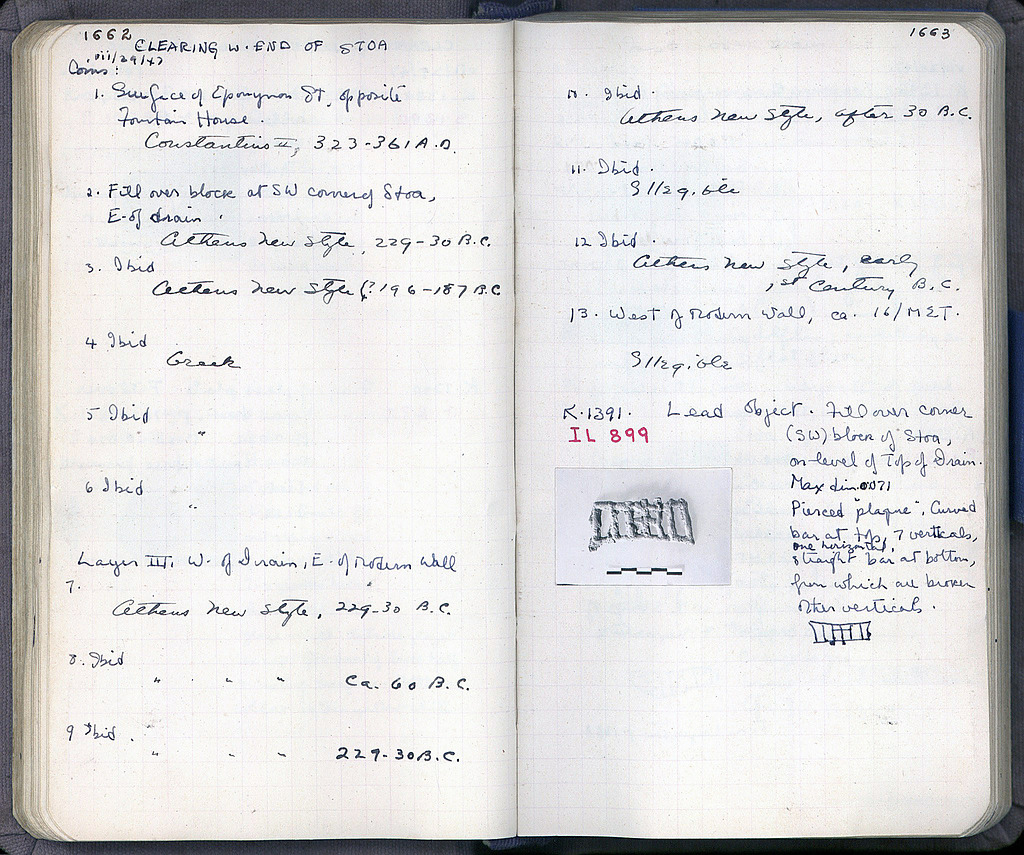 1662
CLEARING W. END OF STOA
viii/29/47
Coins:
1. Surface of Eponymon St, opposite
Fountain House.
Constantius II, 323-361 A.D.
2. Fill over block at SW corner of Stoa,
E. of drain.
Athens New Style, 229-30 B.C.
3. Ibid
Athens New Style (?196-187 B.C
4 Ibid
Greek
5 Ibid
"
6 Ibid
"
Layer III. W. of Drain, E. of modern wall
7.
Athens New Style, 229-30 B.C.
8. Ibid
" " " ca. 60 B.C.
9 Ibid.
" " " 229-30 B.C.
1663
10. Ibid.
Athens New Style, after 30 B.C.
11. Ibid.
Illegible
12 Ibid.
Athens New Style, early
1st Century B.C.
13. West of Modern Wall, ca. 16/MΣT.
Illegible
K.1391. Lead object. Fill over corner
IL 899
(SW) block of Stoa,
on level of Top of Drain.
Max dim. 0.071
Pierced "plaque", Curved
bar at top, 7 verticals,
one horizontal,
straight bar at bottom,
from which are broken
other verticals.